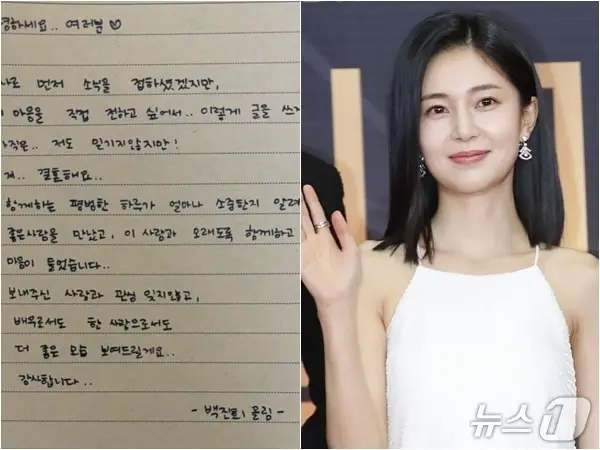 녕하세요.. 여러분 ♡
먼저 소식을 접하셨겠지만,
마음을 직접 전하고 싶어서.. 이렇게 글을
아직은.. 저도 믿기지않지만!
저.. 결혼해요..
함께하는 평범한 하루가 얼마나 소중한지 알려
좋은사람을 만났고, 이 사람과 오래도록 함께하고
마음이 들었습니다..
보내주신 사랑과 관심 잊지않고,
배우로서도 한 사람으로서도
더 좋은 모습 보여드릴게요..
감사합니다..
- 백진희 올림 -
뉴스1